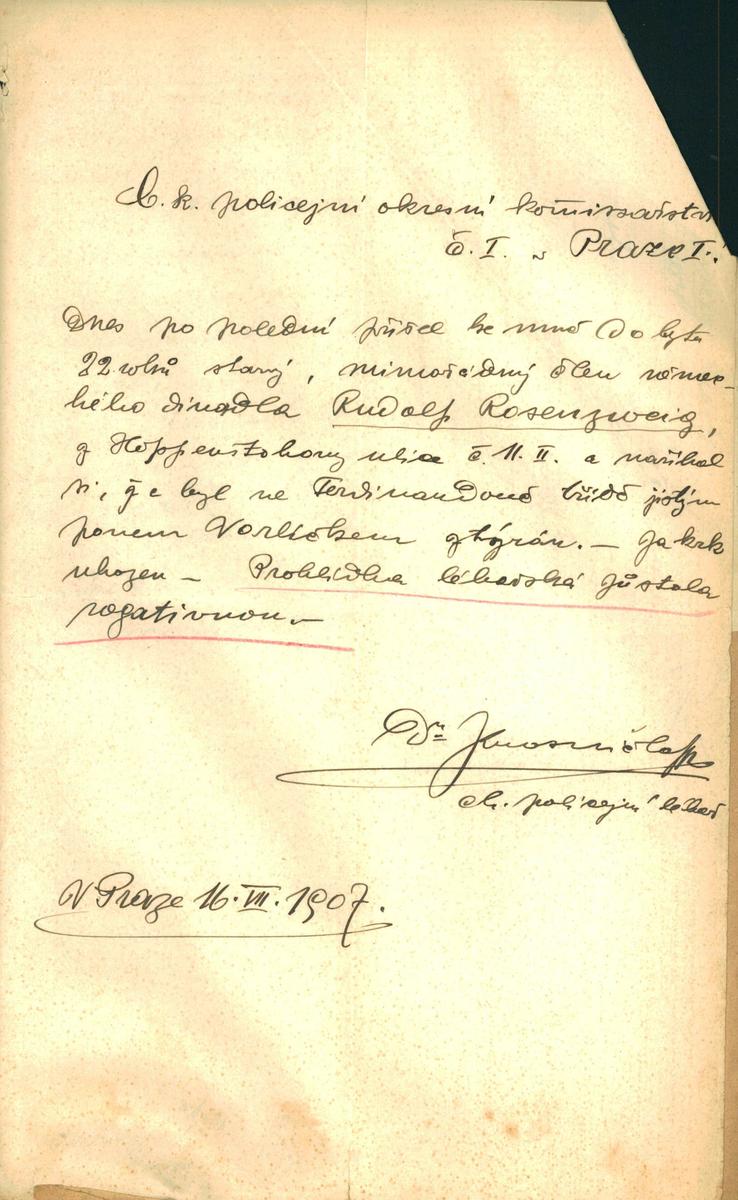 C. k. policejní okresní komisařství
č. I. v Praze I.
Dnes po polední přišel ke mně do bytu
22 roků starý, mimořádný člen němec-
kého divadla Rudolf Rosenzweig,
z ulice č. 11. II. a naříkal
si, že byl na Ferdinandově třídě jistým
panem Vorlíčkem ztýrán. — za krk
uhozen — Prohlídka lékařská zůstala
negativnou. —
Dr
c.k. policejní lékař
V Praze 16. VII. 1907.